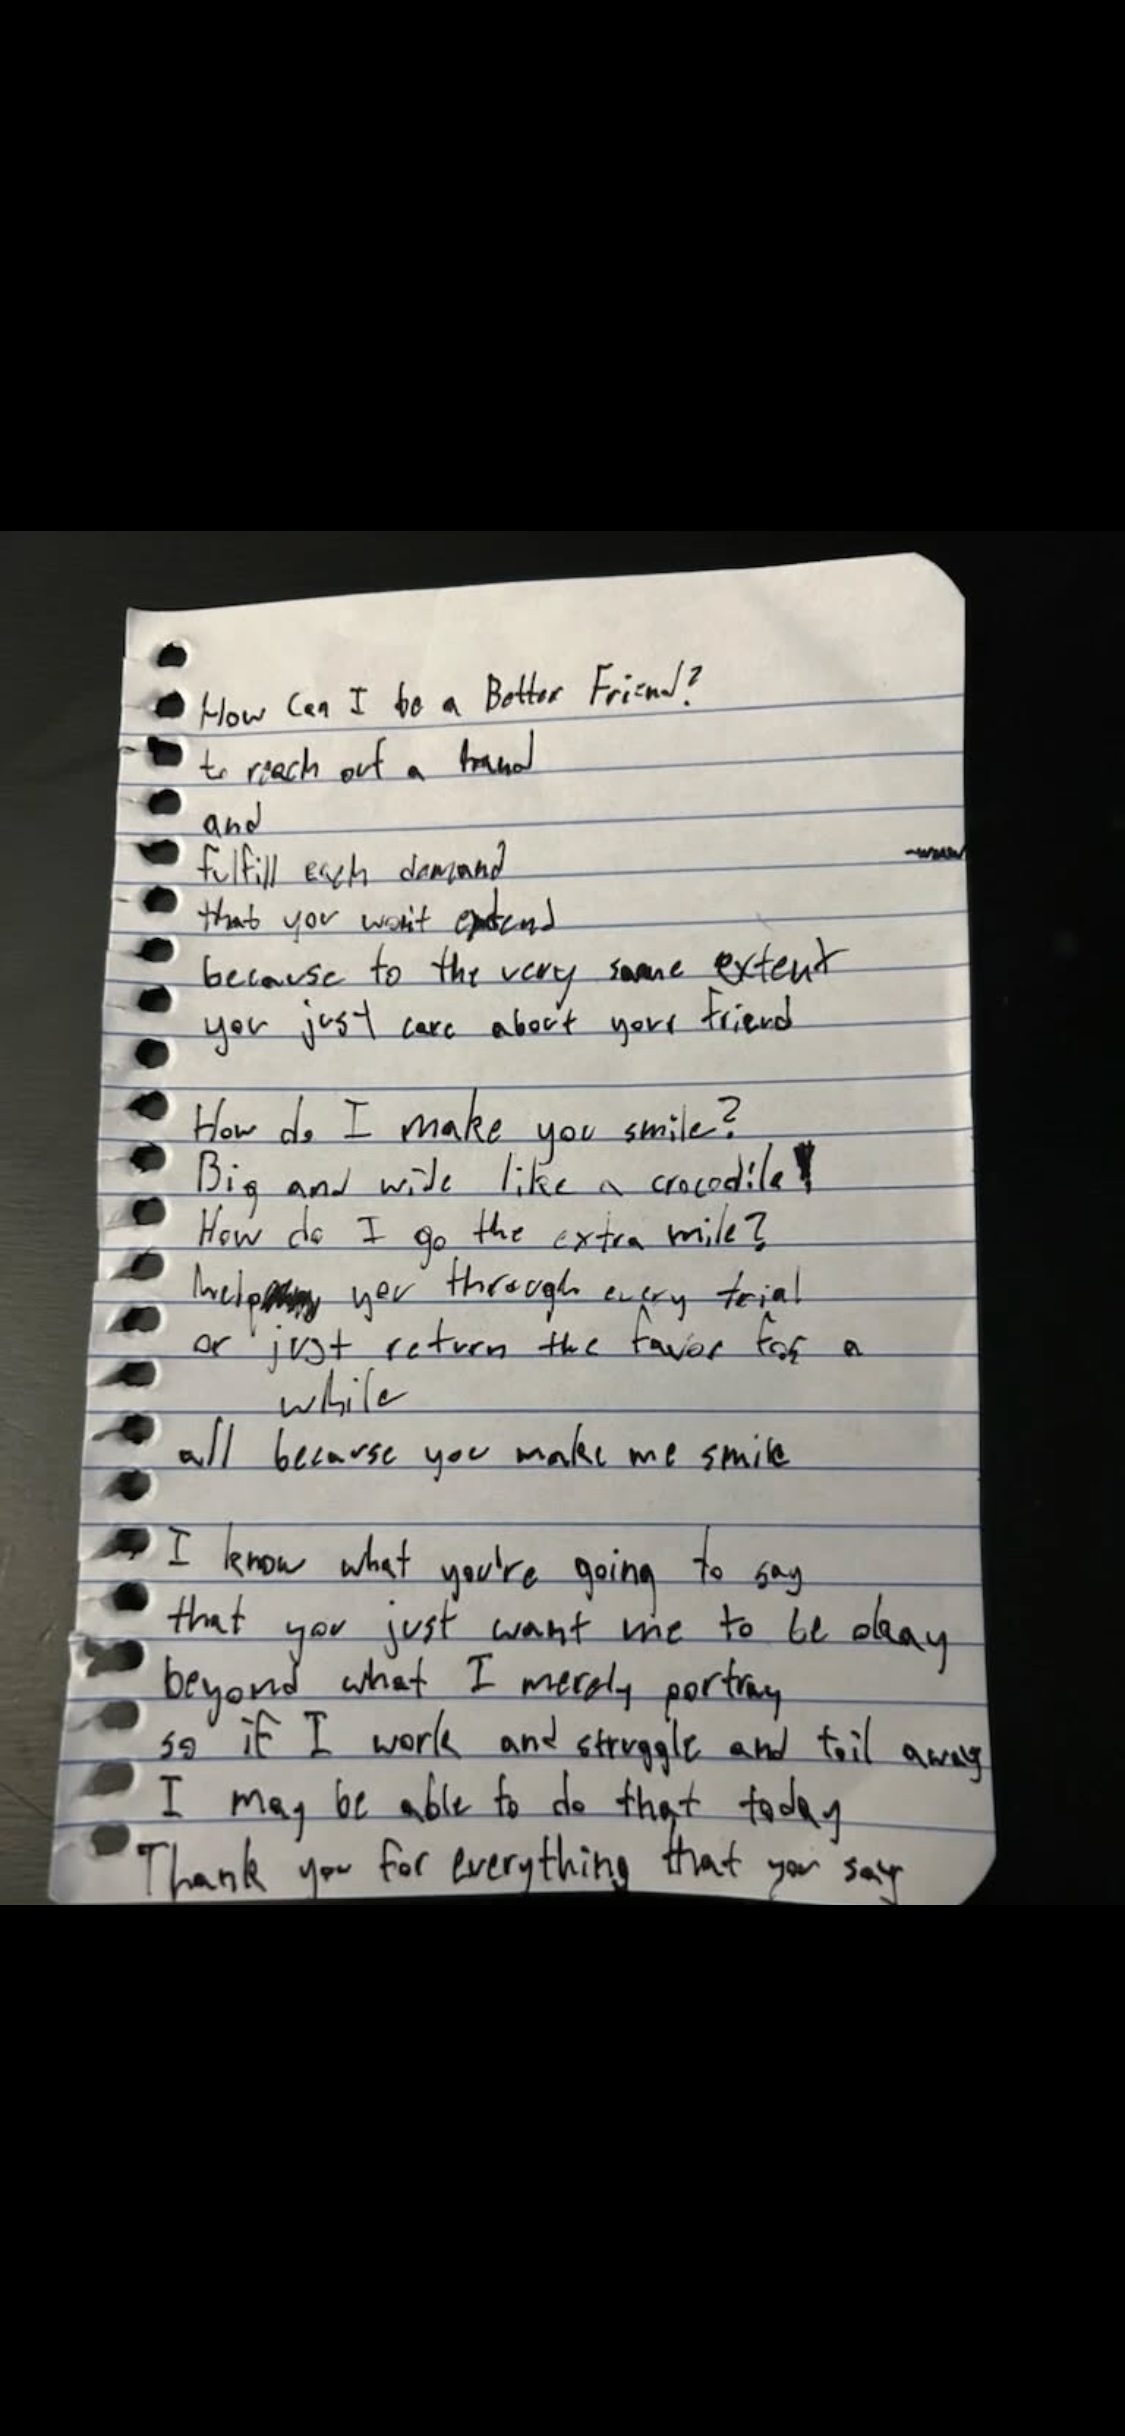 How Can I be a Better Friend?
to reach out a hand
and
fulfill each demand
that you won't extend
because to the very same extent
you just care about your friend
How do I make you smile?
Big and wide like a crocodile!
How do I go the extra mile?
help you through every trial
or just return the favor for a
while
all because you make me smile
I know what you're going to say
that you just want me to be okay
beyond what I merely portray
so if I work and struggle and toil away
I may be able to do that today
Thank you for everything that you say